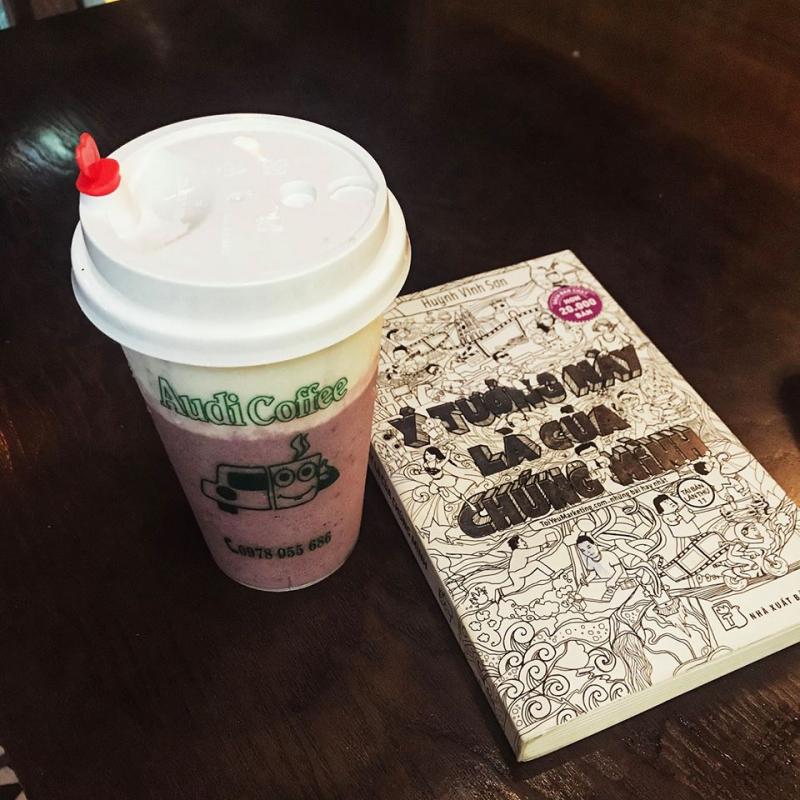 Audi Coffee
0978 055 686
Huỳnh Vĩnh Sơn
HƠN
20.000
BẢN
Ý TƯỞNG NÀY
LÀ CỦA
CHÚNG MÌNH
ToiYeuMarketing.com những bài hay nhất
TÁI BẢN
LẦN THỨ
NHÀ XUẤT B